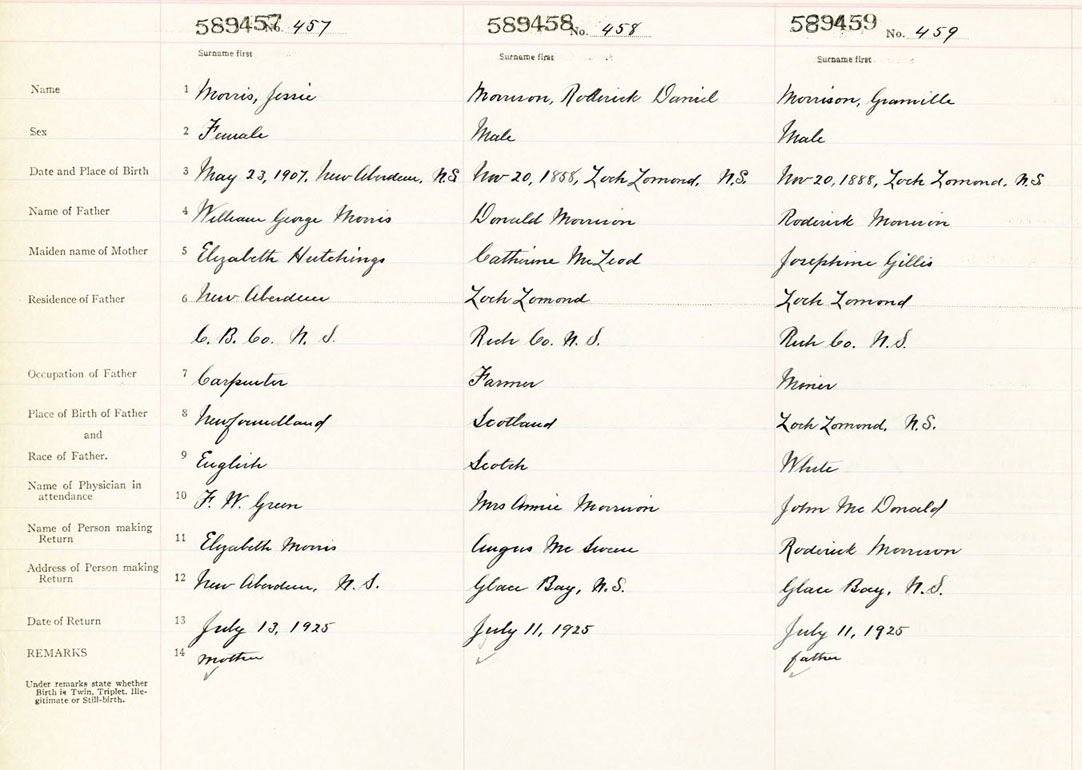 589457 No. 457 589458 No. 458 589459 No. 459
Surname first Surname first Surname first
Name 1 Morris, Jessie Morrison, Roderick Daniel Morrison, Granville
Sex 2 Female Male Male
Date and Place of Birth 3 May 23, 1907, New Aberdeen, N.S Nov 20, 1858, Loch Lomond, N.S. Nov 20, 1888, Loch Lomond, N.S
Name of Father 4 William George Morris Donald Morrison Roderick Morrison
Maiden name of Mother 5 Elizabeth Hutchings Catherine McLeod Josephine Gillis
Residence of Father 6 New Aberdeen Loch Lomond Loch Lomond
C. B. Co. N. S. Rich Co. N. S. Rich Co. N. S.
Occupation of Father 7 Carpenter Farmer Miner
Place of Birth of Father 8 Newfoundland Scotland Loch Lomond, N.S.
and
Race of Father. 9 English Scotch White
Name of Physician in
attendance 10 F. W. Green Mrs Annie Morrison John Mc Donald
Name of Person making
Return 11 Elizabeth Morris Angus Mc Roderick Morrison
Address of Person making
Return 12 New Aberdeen, N. S. Glace Bay, N.S. Glace Bay, N.S.
Date of Return 13 July 13, 1925 July 11, 1925 July 11, 1925
REMARKS 14 mother father
Under remarks state whether
Birth is Twin, Triplet, Ille-
gitimate or Still-birth.